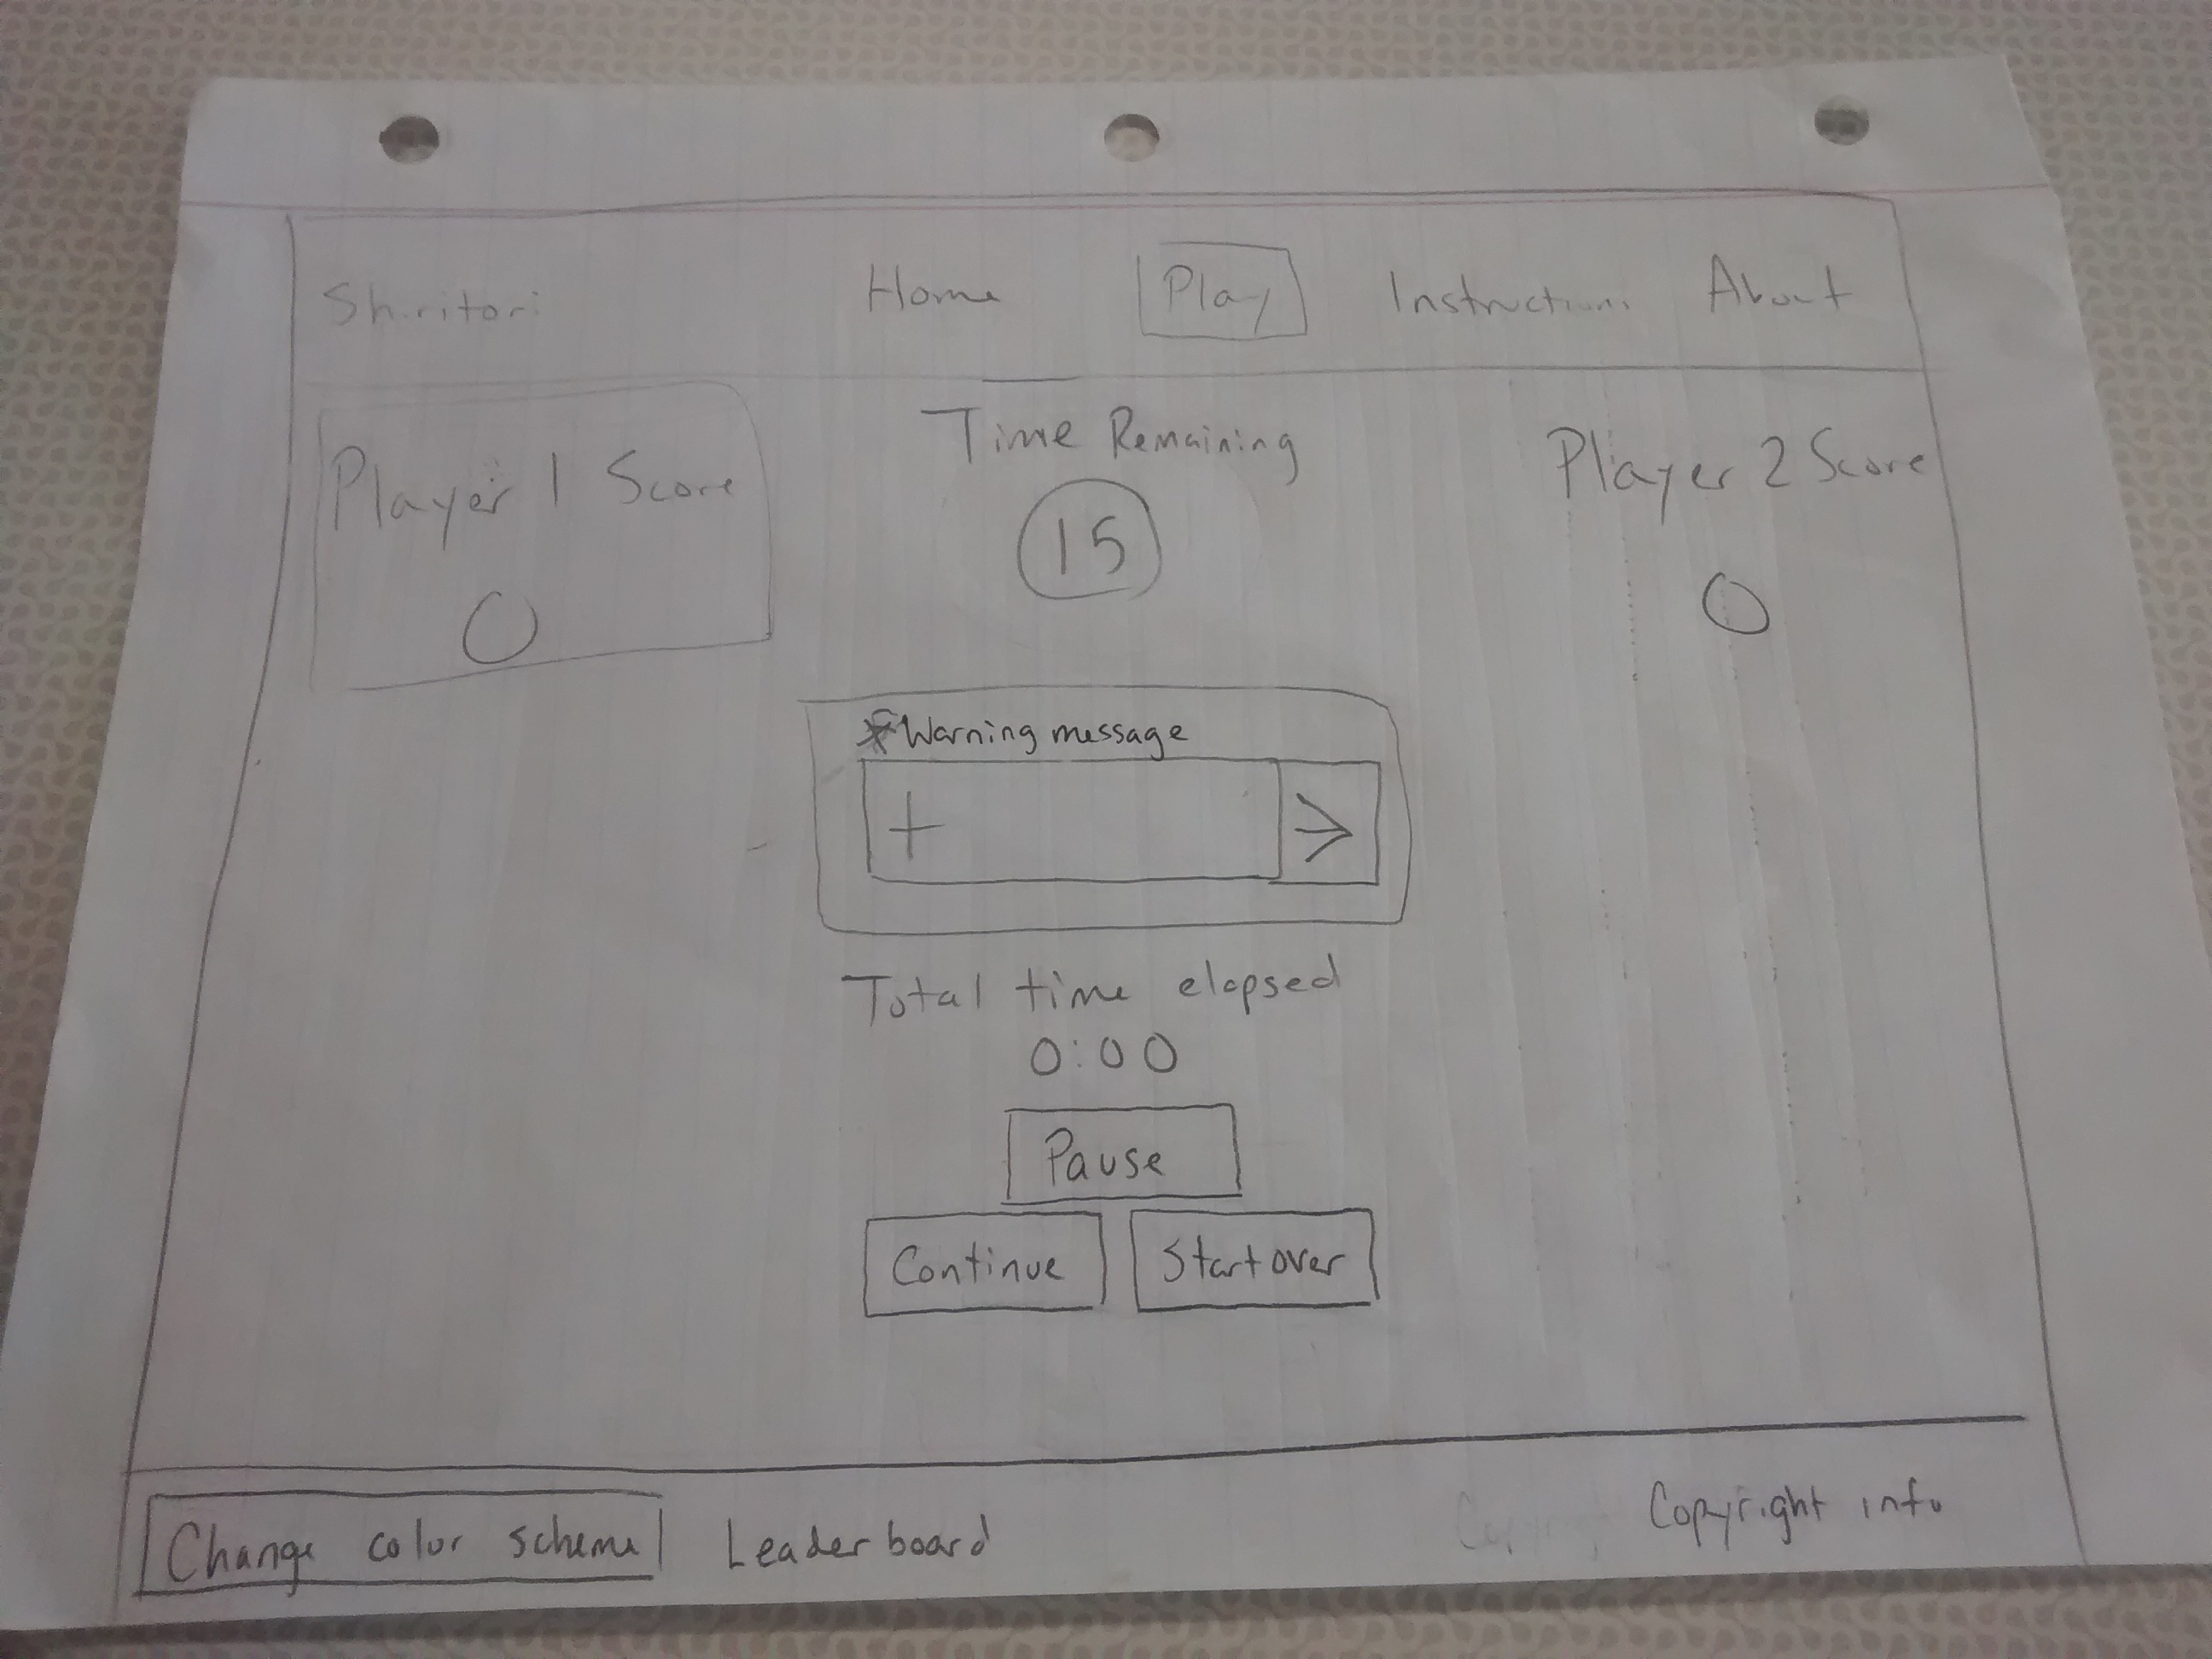 Shiritori Home Play Instructions About
Player 1 Score
0
Time Remaining
15
Player 2 Score
0
*Warning message
+ >
Total time elapsed
0:00
Pause
Continue Start over
Change color scheme Leaderboard Copyright info